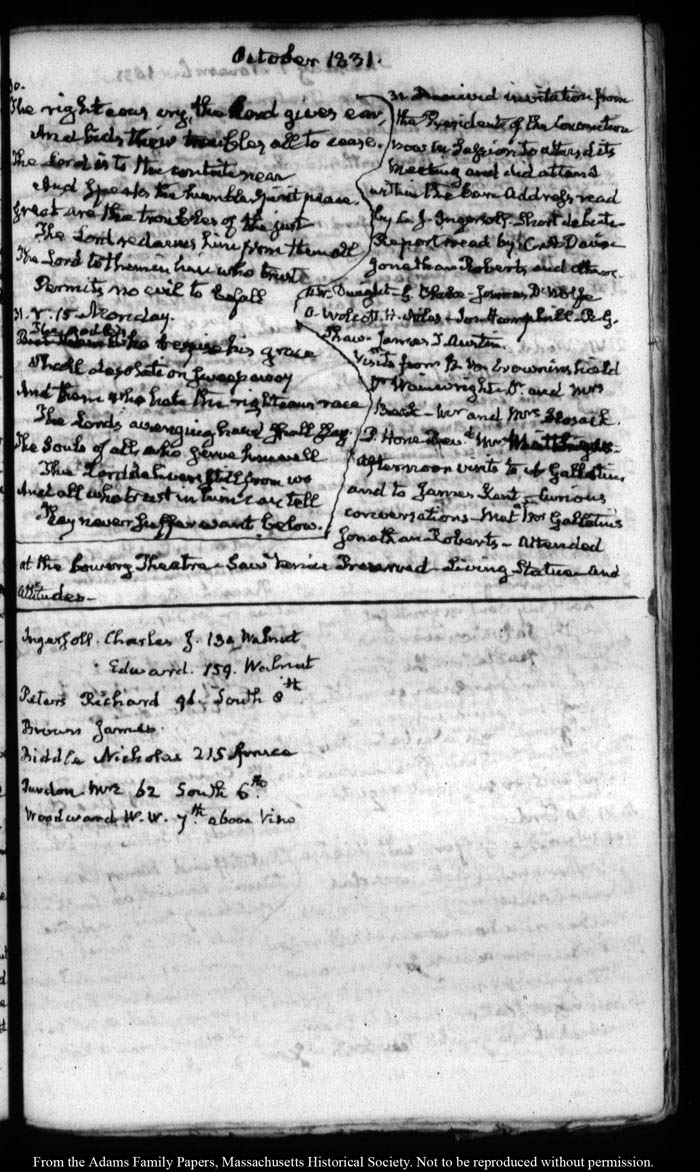 October 1831.
30.
The righteous cry, the Lord gives ear,
And bids their troubles all to cease.
The Lord is to the contrite near
And speaks the humble spirit peace.
Great are the troubles of the just
The Lord redeems him from them all
The Lord to them in him who trust
Permits no evil to befall
31. V. 15 Monday.
The godless
who his grace
Shall desolation sweep away
And them who hate the righteous race
The Lord's avenging hand shall slay.
The Souls of all who serve him well
The Lord delivers still from woe
And all who trust in him can tell
They never suffer want below.
31. Received invitation from
the President of the Convention
now in Session to attend its
meeting and did attend
within the bar. Address read
by C. J. Ingersoll. Short debate.
Report read by
Jonathan Roberts and others.
Dwight - Blake - James D'Wolfe
O. Wolcott. H. Niles - Jon. Campbell - R. G.
Shaw - James T. Austin.
Visits from
Dr Wainwright - Dr. and Mrs
Mr and Mrs Hosack.
P. Hone
afternoon visits to A Gallatin
and to James Kent - Curious
conversations - Met Mr Gallatin's
Jonathan Roberts - Attended
at the Bowery Theatre - Saw Venice Preserved - Living Statue and
Attitudes -
Ingersoll. Charles J. 130 Walnut
Edward. 159. Walnut
Peters Richard 91. South 8th
Brown James
Biddle Nicholas 215 Spruce
Purdon Mrs 62 South 6th.
Woodward W. W. 7th above Vine
From the Adams Family Papers, Massachusetts Historical Society. Not to be reproduced without permission.